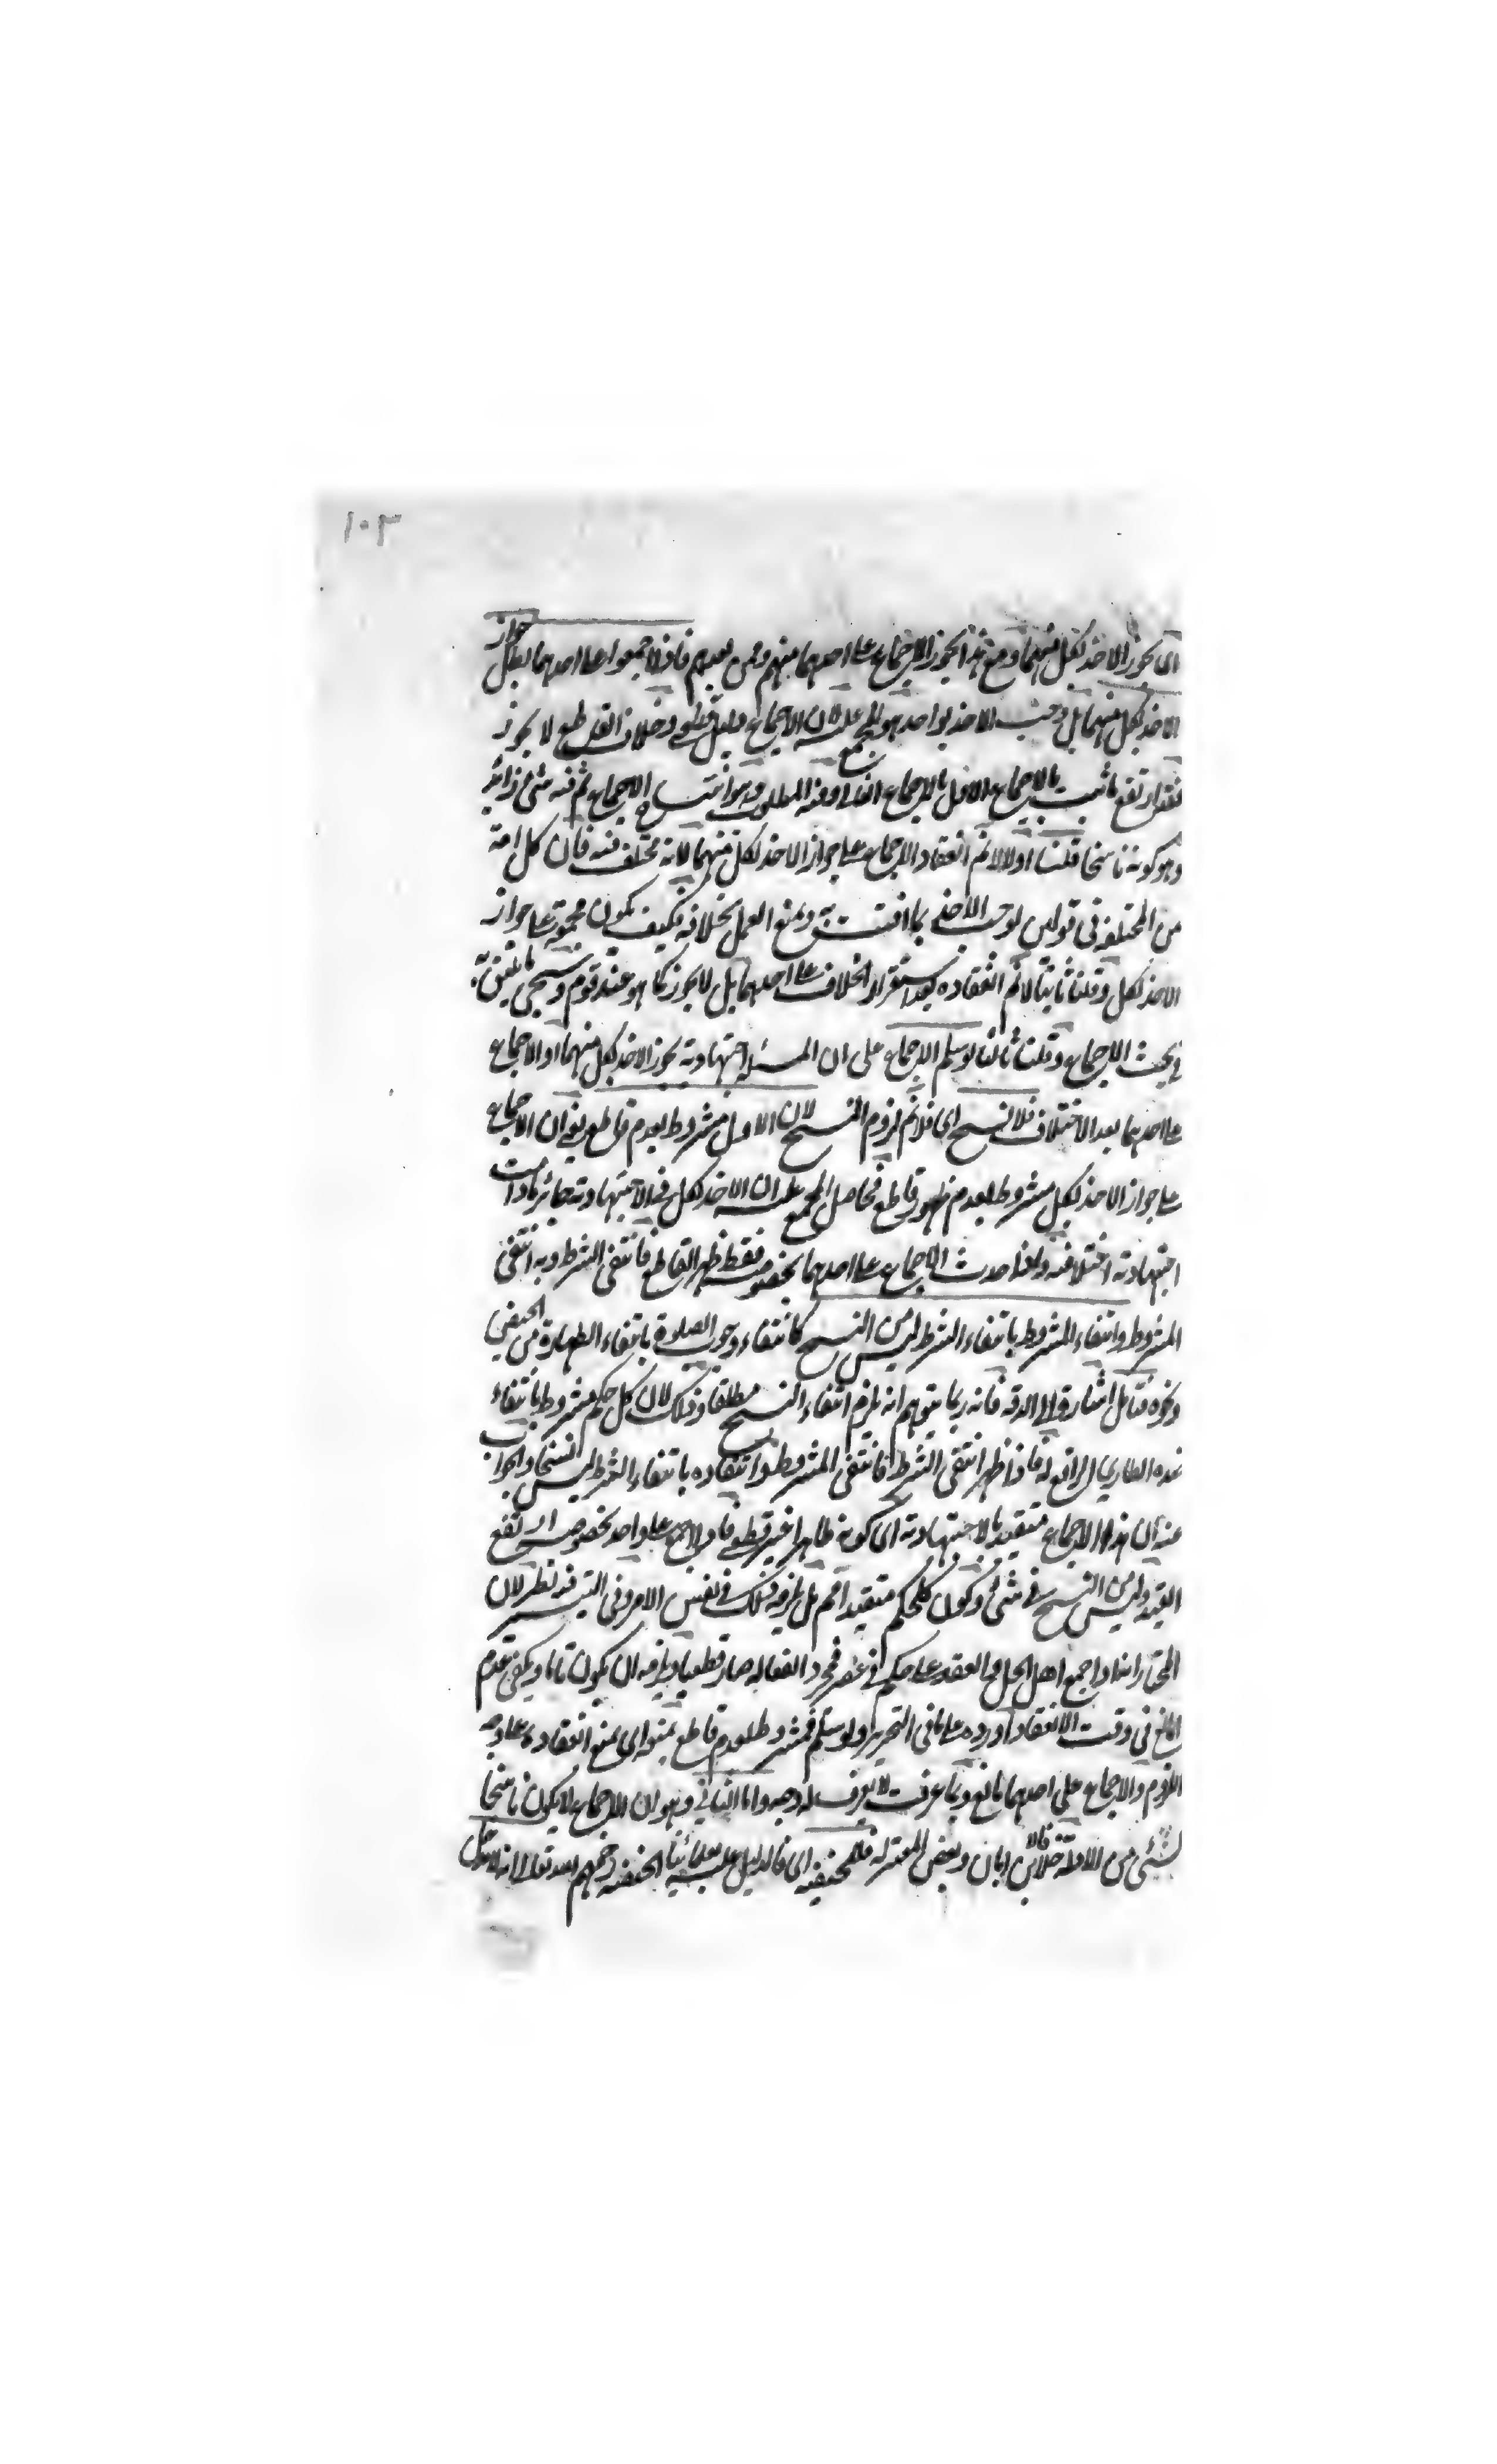 ١٠٣
اى يجوز الاخذ بكل منهما ومع هذا يجوز الاجماع على احدهما منهم وممن بعدهم فاذا اجمعوا على احدهما بطل جواز
الاخذ بكل منهما بل وجب الاخذ بواحد هو المجمع عليه لان الاجماع دليل قطعى وخلاف القاطع لا يجوز
فقد ارتفع ما ثبت بالاجماع الاول بالاجماع وفيه المطلوب وهو انتساخ الاجماع ثم فيه شئ زائد
وهو كونه ناسخا قلنا اولا لا نم انعقاد الاجماع على جواز الاخذ لكل منهما لانه مختلف فيه فان كل امة
من المختلفة فى قولين يوجب الاخذ بما افتت به ويمنع العمل بخلافه فكيف يكون مجمعة على جواز
الاخذ بكل وقلنا ثانيا لا نم انعقاده بعد استقرار الخلاف على احدهما بل لا يجوز كما هو عند قوم وسيجئ ما يتعلق به
فى بحث الاجماع وقلنا ثالثا لو سلم الاجماع على ان المسئلة اجتهادية يجوز الاخذ بكل منهما او الاجماع
على احدهما بعد الاختلاف فلا نسخ اى فلا نم لزوم النسخ لان الاول مشروط بعدم قاطع يعنى ان الاجماع
على جواز الاخذ بكل مشروط بعدم ظهور قاطع فحاصل المجمع عليه ان الاخذ بكل فى الاجتهادية جائز ما دامت
اجتهادية اختلافية واذا حدث الاجماع على احدهما بخصوصه فقط ظهر القاطع فانتفى الشرط وبه انتفى
المشروط وانتفاء المشروط بانتفاء الشرط ليس من النسخ كانتفاء وجوب الصلوة بانتفاء الطهارة من الحيض
ونحوه فتامل اشارة الى الدقة فانه ربما يتوهم انه يلزم انتفاء النسخ مطلقا وذلك لان كل حكم مشروط بانتفاء
ضده الطارى الرافع له فاذا ظهر انتفى الشرط فانتفى المشروط وانتفاءه بانتفاء الشرط ليس نسخا والجواب
عنه ان هذا الاجماع متقيد بالاجتهادية اى كونه ظاهرا غير قطعى فاذا اجمع على واحد بخصوصه ارتفع
القيد وليس من النسخ فى شئ وكون كل حكم متقيدا مم بل يلزمه ذلك فى نفس الامر وفى التيسير فيه نظر لان
المختار انه اذا اجمع اهل الحل والعقد على حكم فى عصر فمجرد انعقاله صار قطعيا ويلزمه ان يكون ويكفى عدم
المانع فى وقت الانعقاد اورده على ما فى التحرير ولو سلم فمشروط بعدم قاطع يمنعه اى يمنع انعقاده على وجه
اللزوم والاجماع على احدهما مانع وبما عرفت لا يعرف له وجه واما الثانى وهو ان الاجماع لا يكون ناسخا
لشئ من الادلة خلافا لابن ابان وبعض المعتزلة فللحنفية اى فالدليل عليه لعلمائنا الحنفية رحمهم الله تعالى انه لا دخل